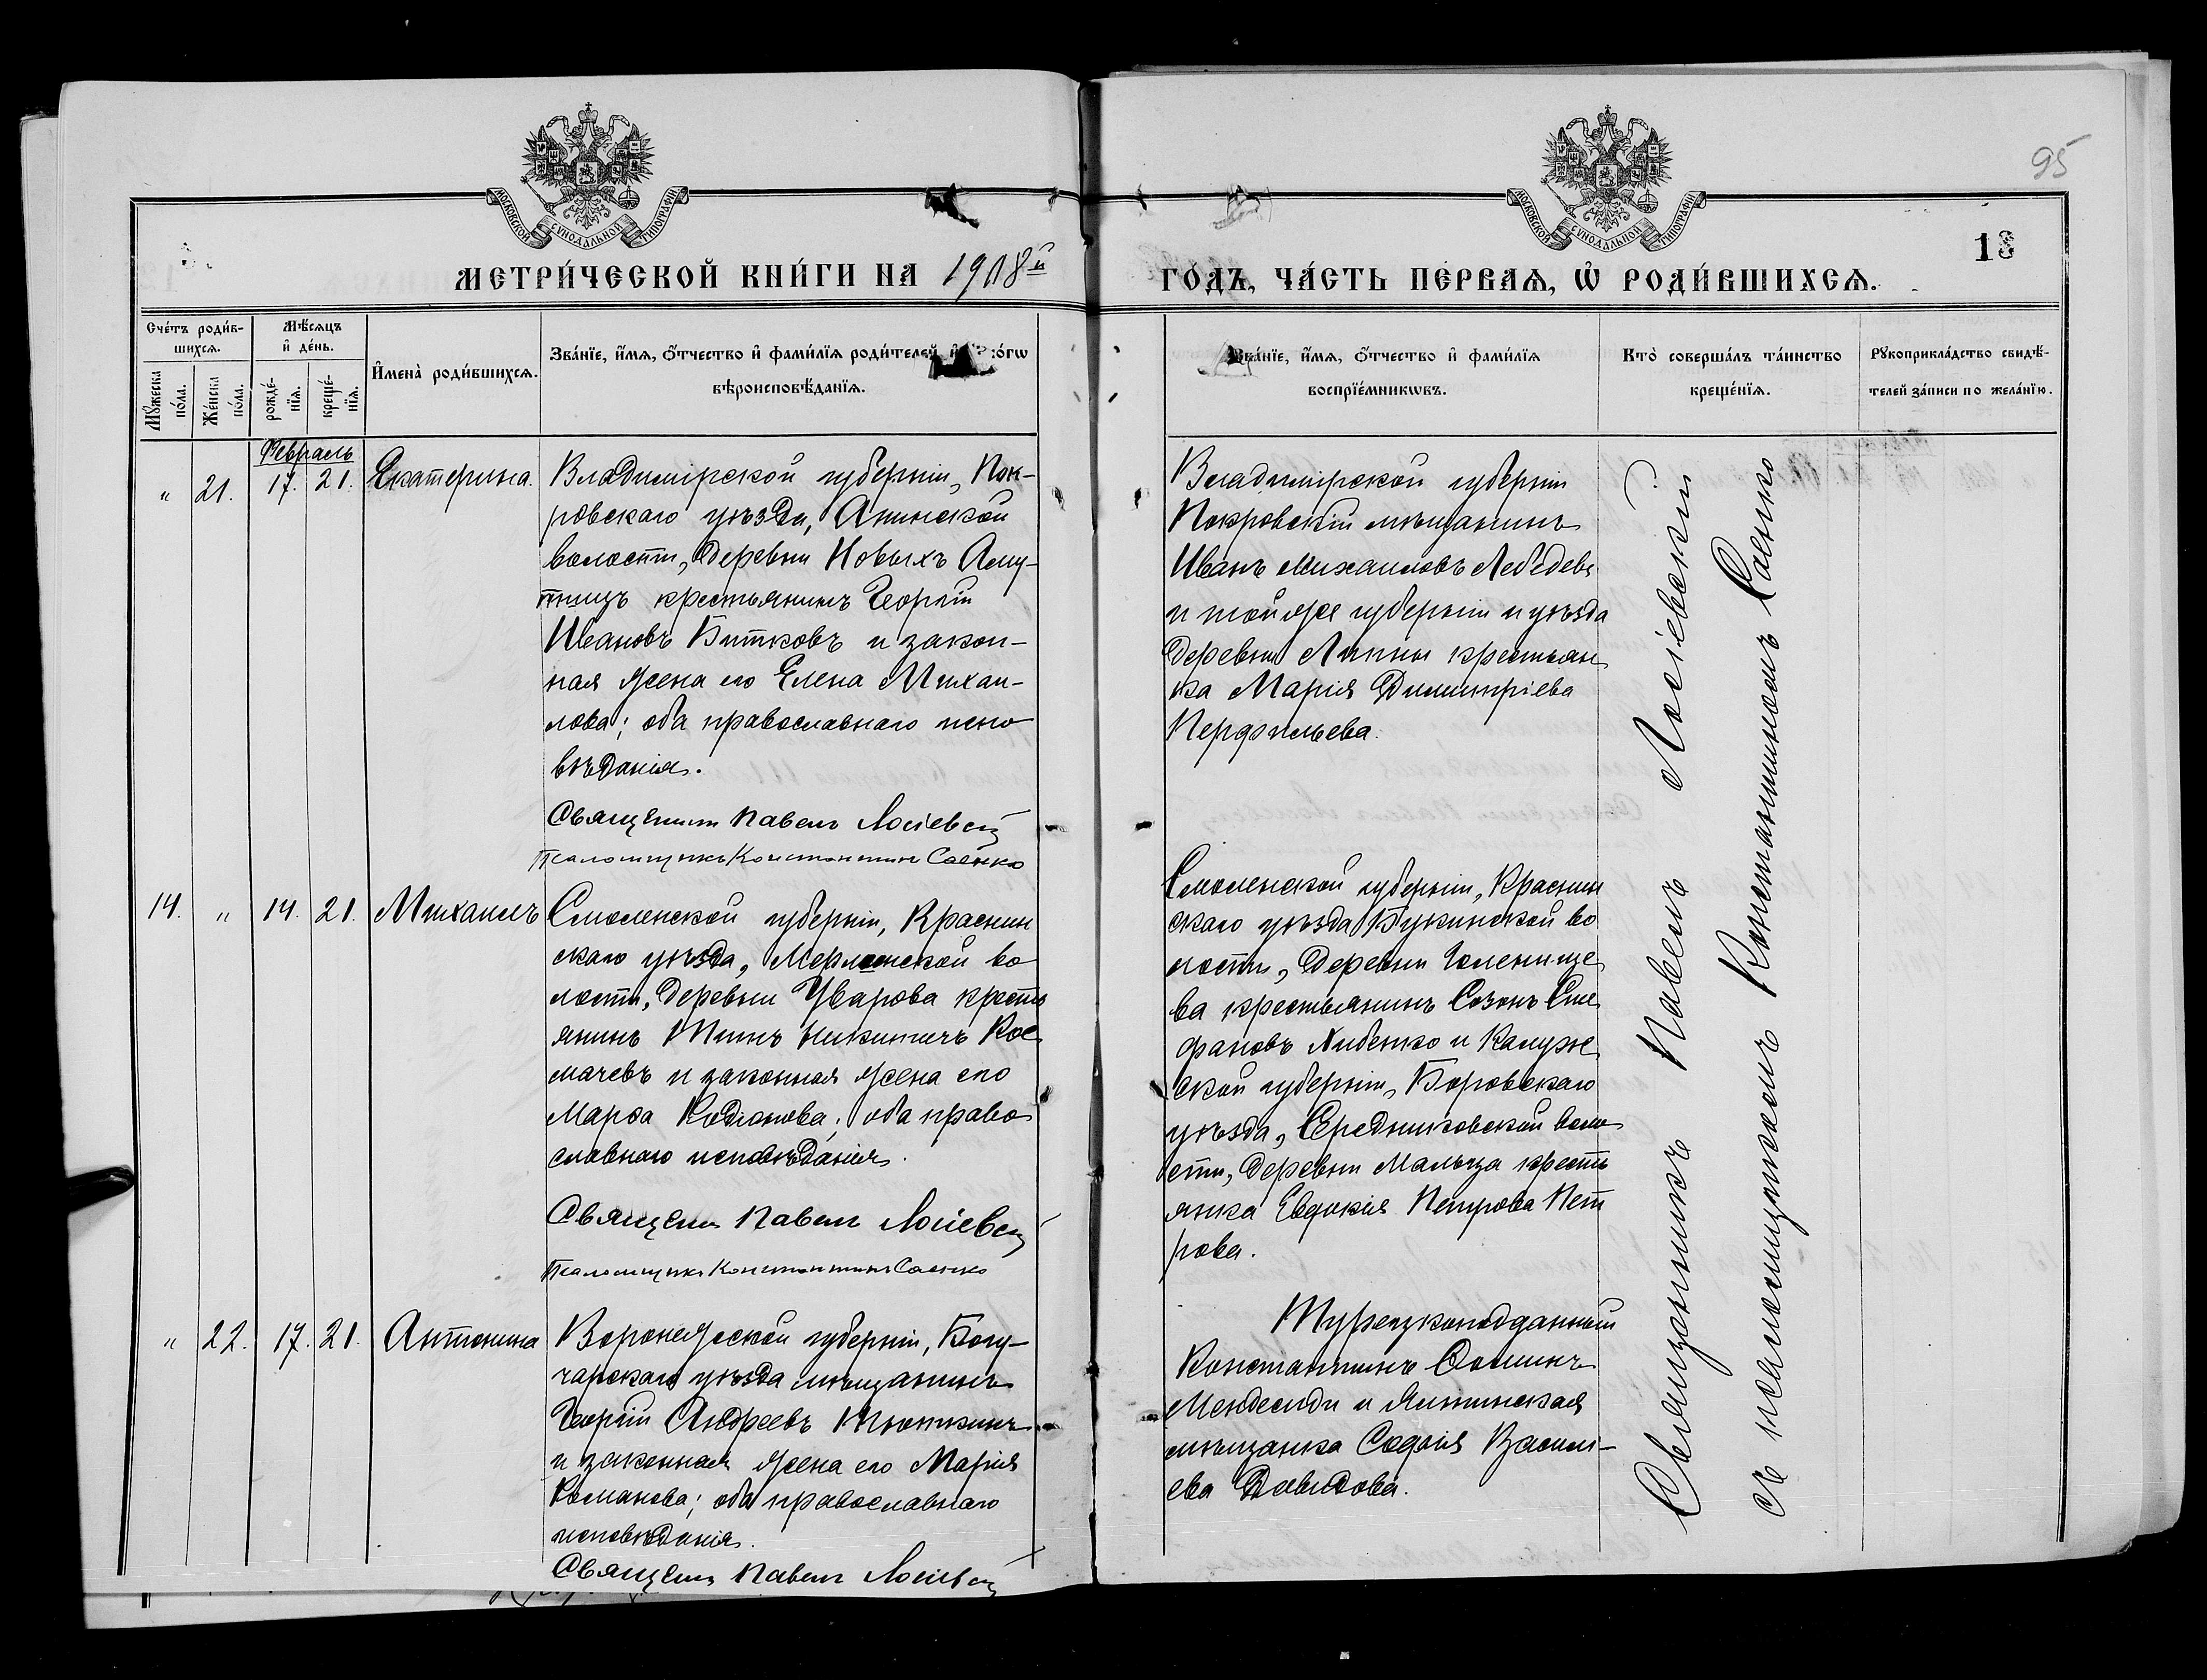 95
МОСКОВСКОЙ СѴНОДАЛЬНОЙ ТИПОГРАФІИ
МОСКОВСКОЙ СѴНОДАЛЬНОЙ ТИПОГРАФІИ
МЕТРИ́ЧЕСКОЙ КНИ́ГИ НА 1918й
ГО́ДЪ, ЧА́СТЬ ПЕ́РВАѦ, Ѡ҆ РОДИ́ВШИХСѦ.
13
Сче́тъ роди́в-
шихсѧ.
Мꙋ́жеска
по́ла.
Же́нска
по́ла.
Мѣ́сѧцъ
и҆ де́нь.
рожде́-
нїѧ.
креще́-
нїѧ.
И҆мена̀ роди́вшихсѧ.
Зва́нїе, и҆́мѧ, ѻ҆́тчество и҆ фами́лїѧ роди́телей и҆
вѣроисповѣ́данїѧ.
Зва́нїе, и҆́мѧ, ѻ҆́тчество и҆ фами́лїѧ
воспрїе́мникѡвъ.
Кто̀ соверша́лъ та́инство
креще́нїѧ.
Рꙋкоприкла́дство свидѣ́-
телей за́писи по жела́нїю.
Февраль
" 21. 17. 21. Екатерина.
Владимірской губерніи, Пок-
ровскаго уѣзда, Аннской
волости, деревни Новыхъ Ому-
тищъ крестьянинъ Георгій
Ивановъ Битковъ и закон-
ная жена его Елена Михаи-
лова; оба православнаго испо
вѣданія.
Священникъ Павелъ Лосіевскій
Псаломщикъ Константинъ Саенко
Владимірской губерніи
Покровскій мѣщанинъ
Иванъ Михаиловъ Лебедевъ
и той же губерніи и уѣзда
деревни Липны крестьян
ка Марія Димитріева
Перфильева.
14. " 14. 21. Михаилъ
Смоленской губерніи, Краснин
скаго уѣзда, Мерлинской во
лости, деревни Уварова кресть
янинъ Титъ Никитичъ Кос
мачевъ и законная жена его
Марфа Родіонова; оба право
славнаго исповѣданія.
Священникъ Павелъ Лосіевскій
Псаломщикъ Константинъ Саенко
Смоленской губерніи, Краснин
скаго уѣзда Букинской во
лости, деревни Голенище
ва крестьянинъ Созонъ Сте
фановъ Хибенко и Калуж
ской губерніи, Боровскаго
уѣзда, Серединковской воло
сти, деревни Мальца кресть
янка Евдокія Петрова Пет
рова.
" 22. 17. 21. Антонина
Воронежской губерніи, Богу-
чарскаго уѣзда мѣщанинъ
Георгій Андреевъ Тюткинъ
и законная жена его Марія
Романова; оба православнаго
исповѣданія.
Священникъ Павелъ Лосіевскій
Турецкоподданный
Константинъ Саминъ
Мендесиди и Ялтинская
мѣщанка Софія Василі-
ева Давидова.
Священникъ Павелъ Лосіевскій
съ псаломщикомъ Константиномъ Саенко